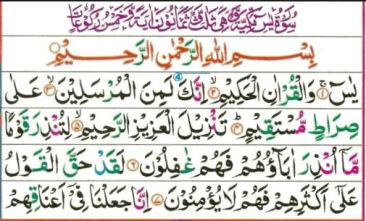 سُوْرَةُ يٰسٓ مَكِّيَّةٌ وَّهِىَ ثَلٰثٌ وَّثَمَانُوْنَ اٰيَةً وَّخَمْسُ رُكُوْعَاتٍ
بِسْمِ اللّٰهِ الرَّحْمٰنِ الرَّحِيْمِ
يٰسٓ ۝۱ وَالْقُرْاٰنِ الْحَكِيْمِ ۝۲ اِنَّكَ لَمِنَ الْمُرْسَلِيْنَ ۝۳ عَلٰى
صِرَاطٍ مُّسْتَقِيْمٍ ۝۴ تَنْزِيْلَ الْعَزِيْزِ الرَّحِيْمِ ۝۵ لِتُنْذِرَ قَوْمًا
مَّاۤ اُنْذِرَ اٰبَآؤُهُمْ فَهُمْ غٰفِلُوْنَ ۝۶ لَقَدْ حَقَّ الْقَوْلُ
عَلٰٓى اَكْثَرِهِمْ فَهُمْ لَا يُؤْمِنُوْنَ ۝۷ اِنَّا جَعَلْنَا فِىْۤ اَعْنَاقِهِمْ